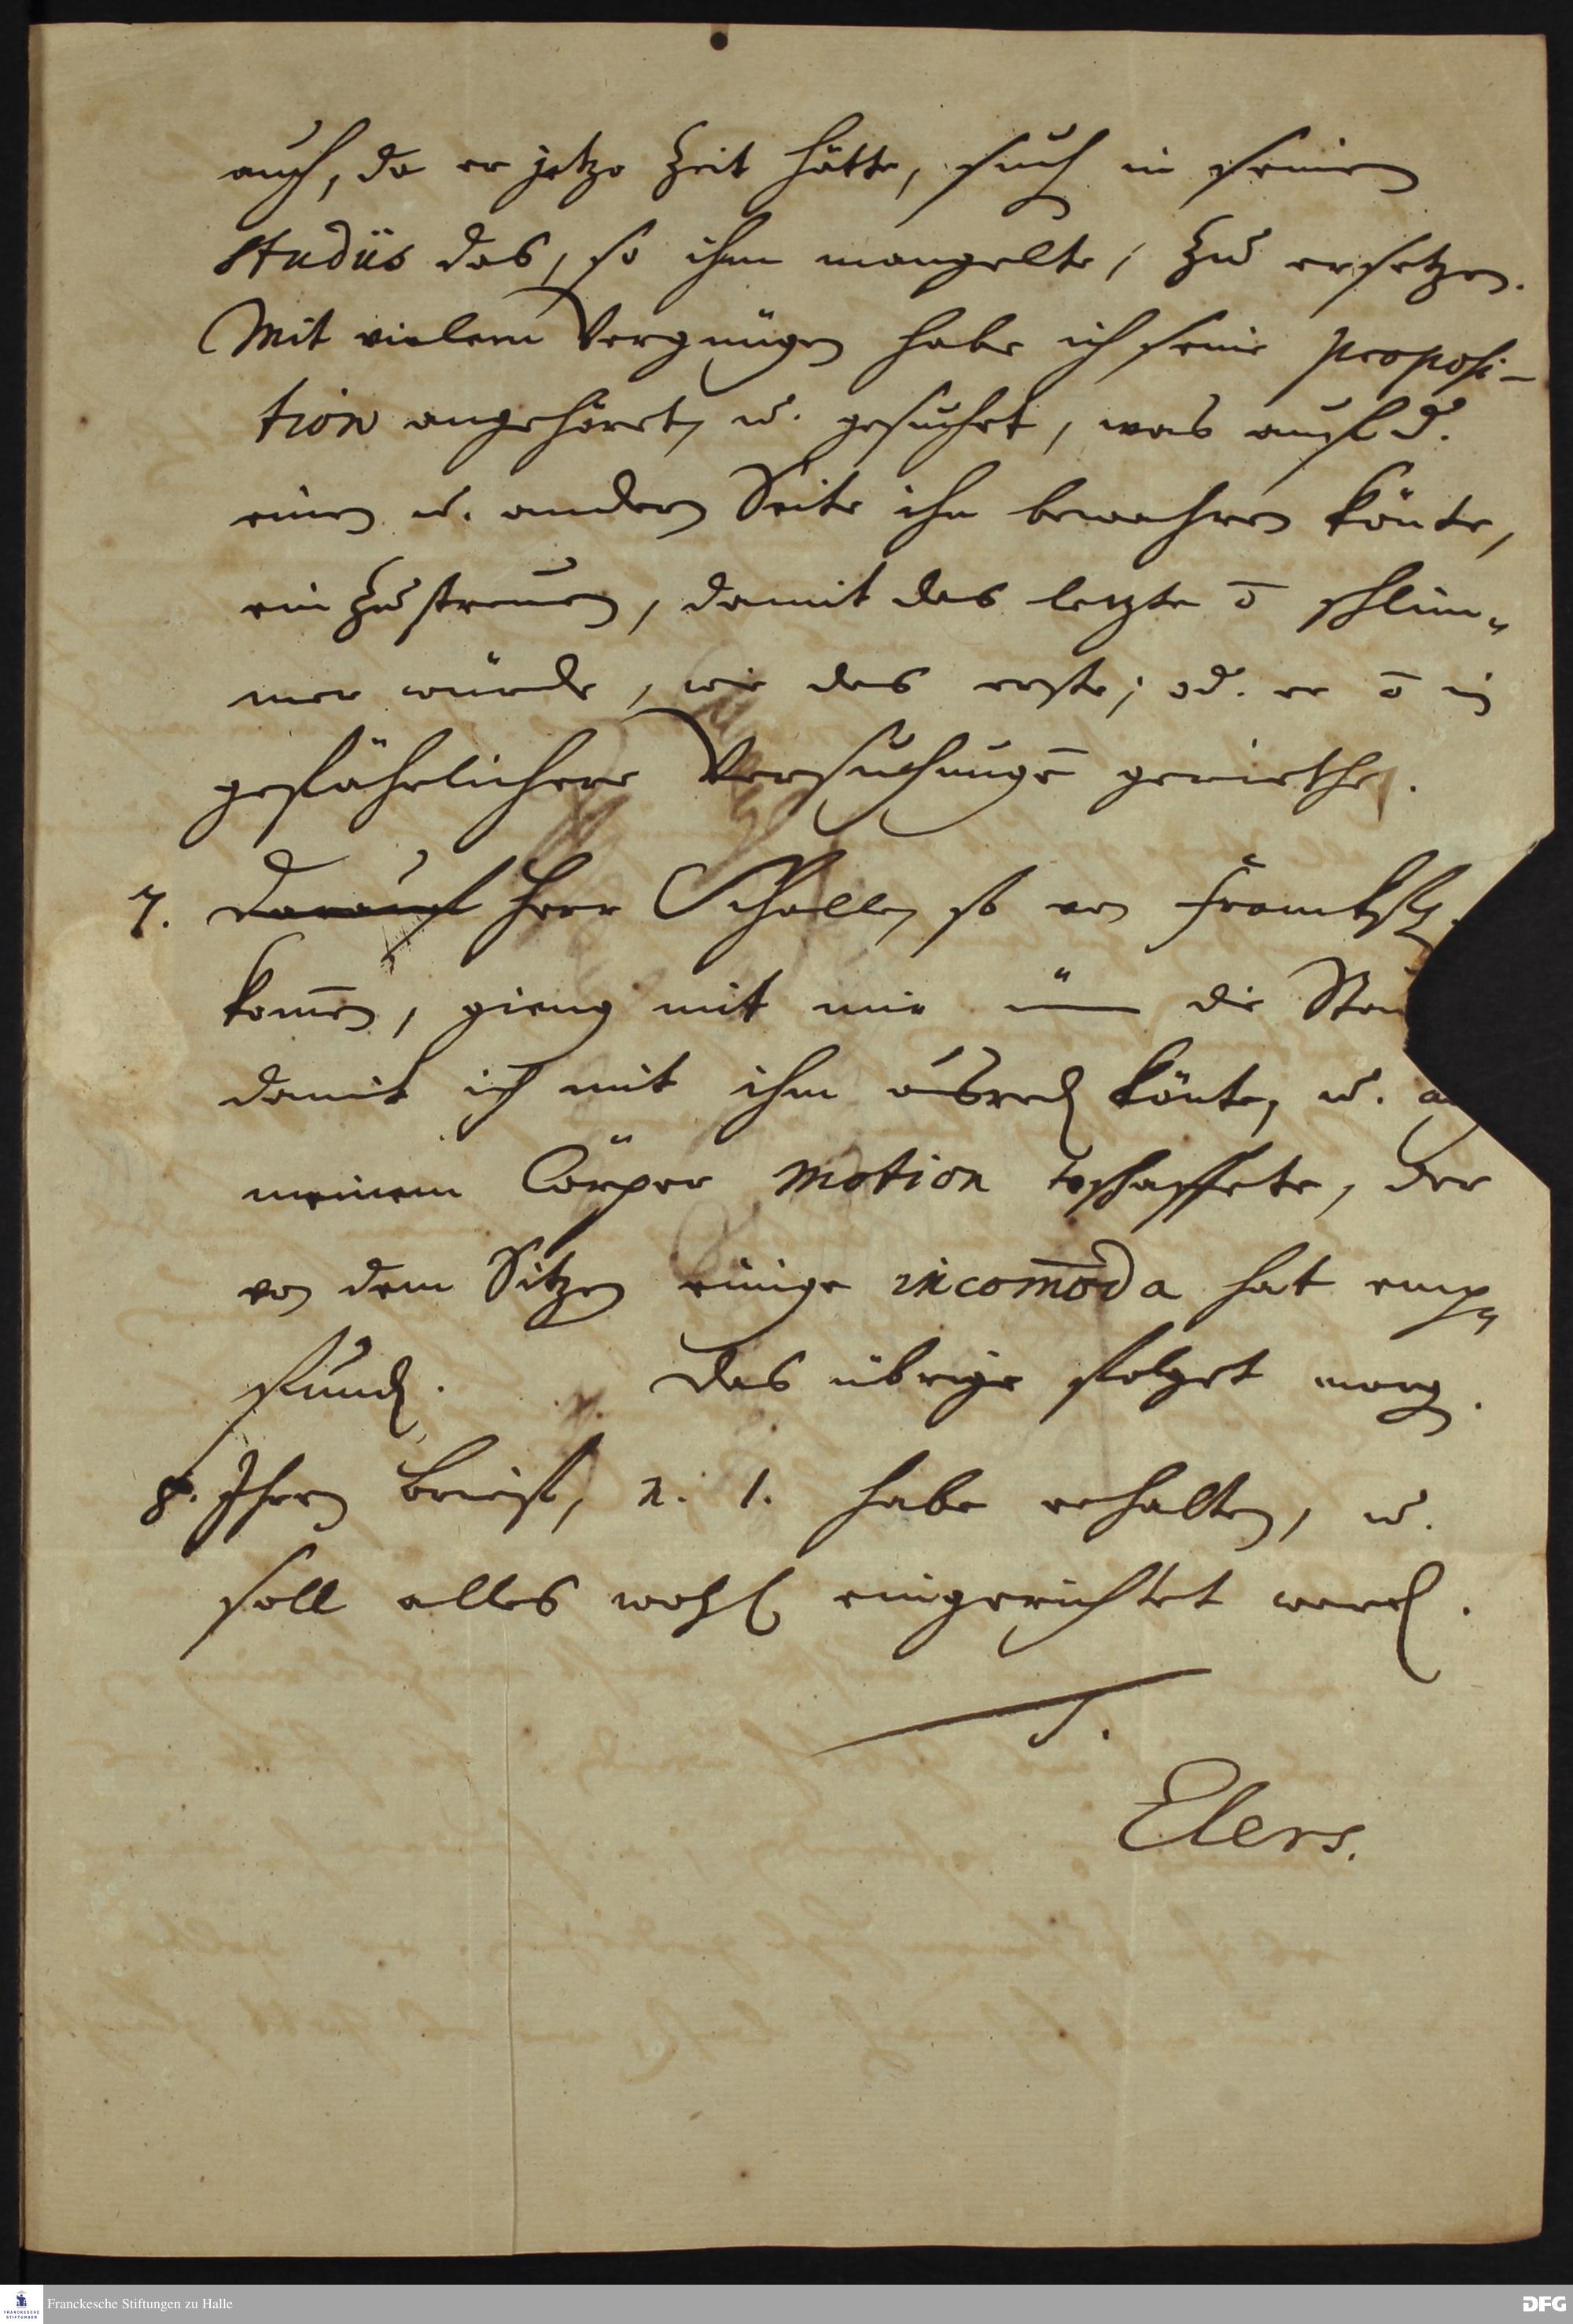 auch, da er jetzo Zeit hätte, such in seinen
studiis das, so ihm mangelte, zu ersetzen.
Mit vielem Vergnügen habe ich seine proposi-
tion angehöret, u. gesuchet, was auf d.
einen u. andern Seite ihn bewahren könte,
ein zu streuen, damit das letzte ō schlim„
mer würde, wie das erste; od. er ō in
gefährlichere Versuchungē geriethe.
7. Darauf Herr Schalle, so von Franckf.
kom̄en, gieng mit mir üm die
damit ich mit ihm könte, u.
meinem Cörper motion schaffete, der
von dem Sitzen einige incom̄oda hat emp„
fund. Das übrige folget morg.
8. Ihren Brief, n. 1. habe erhalten, u.
soll alles wohl eingerichtet werd.
T.
Elers.
Franckesche Stiftungen zu Halle
DFG